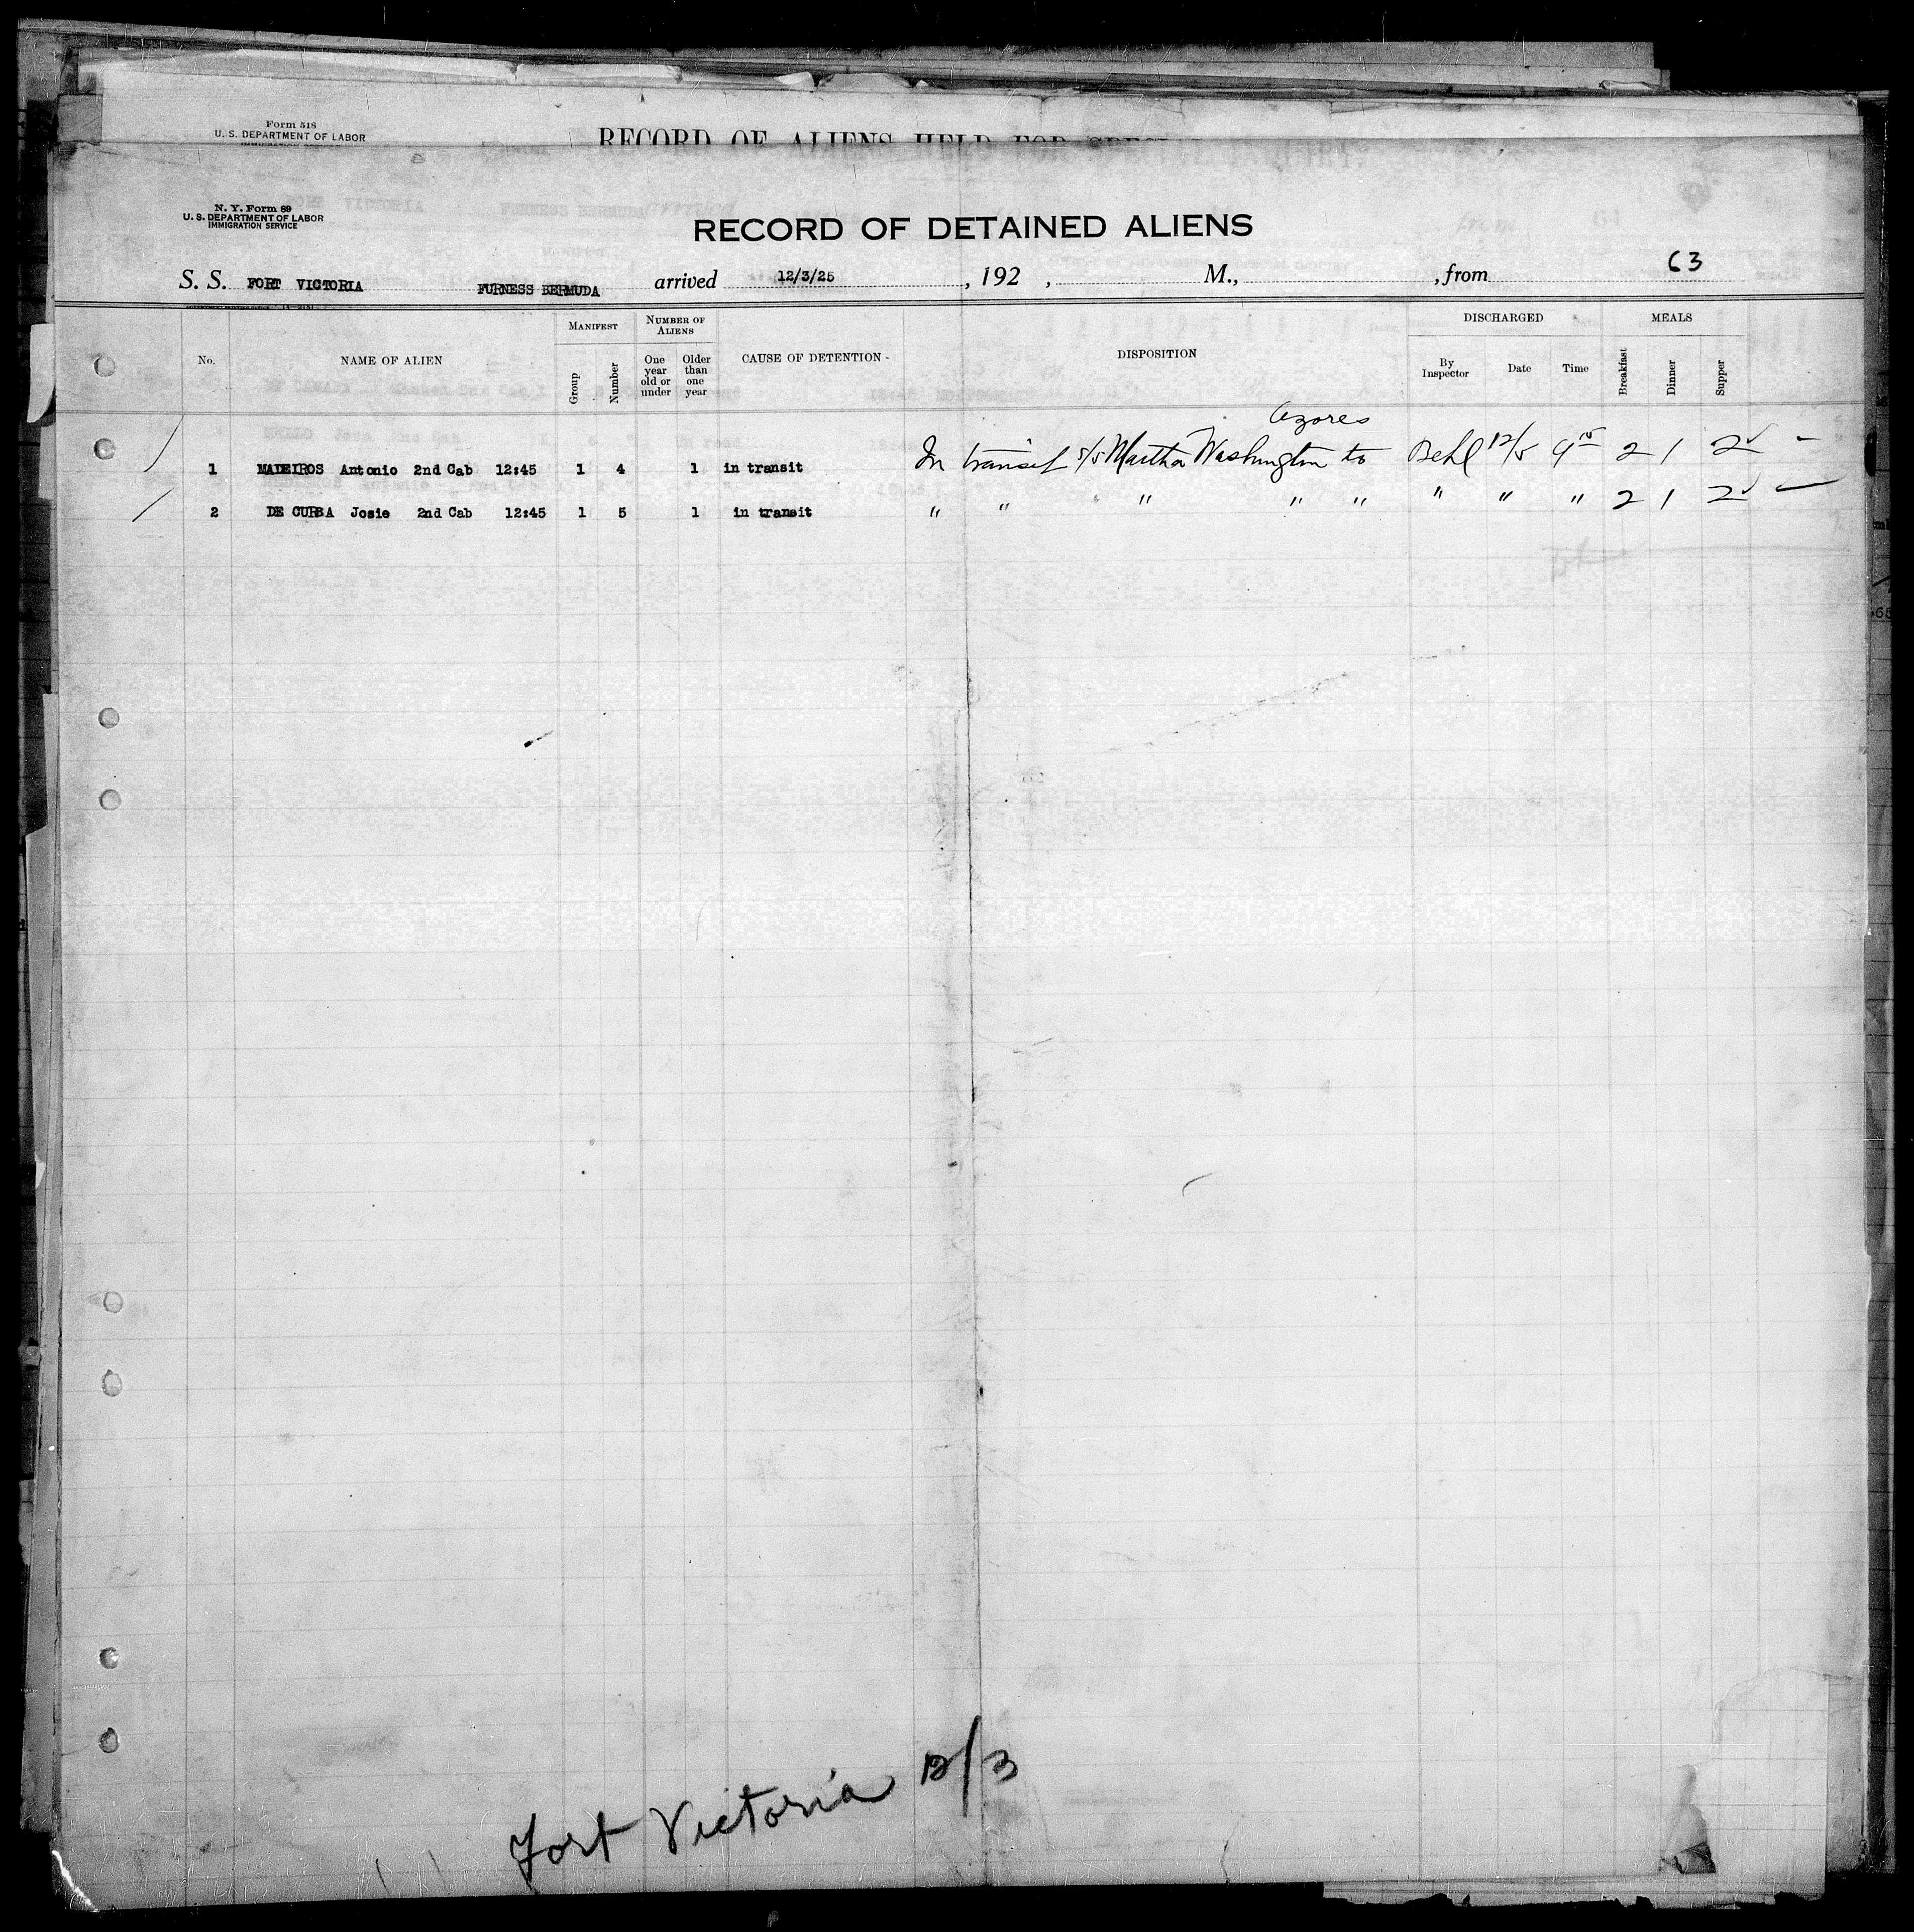 Form 518
U. S. DEPARTMENT OF LABOR
RECORD OF ALIENS HELD FOR SPECIAL INQUIRY
N. Y. Form 89
U. S. DEPARTMENT OF LABOR
IMMIGRATION SERVICE
RECORD OF DETAINED ALIENS
63
S. S. FORT VICTORIA FURNESS BERMUDA arrived 12/3/25, 192 , M., , from
No. NAME OF ALIEN MANIFEST Group Number NUMBER OF ALIENS One year old or under Older than one year CAUSE OF DETENTION DISPOSITION DISCHARGED By Inspector Date Time MEALS Breakfast Dinner Supper
Azores
1 MADEIROS Antonio 2nd Cab 12:45 1 4 1 in transit In transit S/S Martha Washington to Behl 12/5 9 15 2 1 2
2 DE CURBA Josie 2nd Cab 12:45 1 5 1 in transit " " " " " " " " " 2 1 2
Fort Victoria 12/3